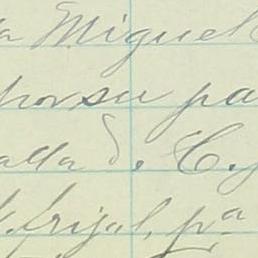 a Miguel
por su pa
ada d. C.
frijol, pa